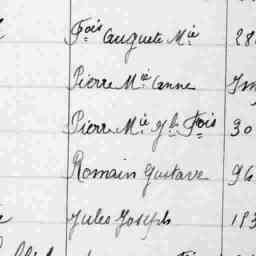 Fois Auguste Mie 28
Pierre Mie Anne
Pierre Mie Jh Fois 30
Romain Gustave 96
Jules Joseph 193